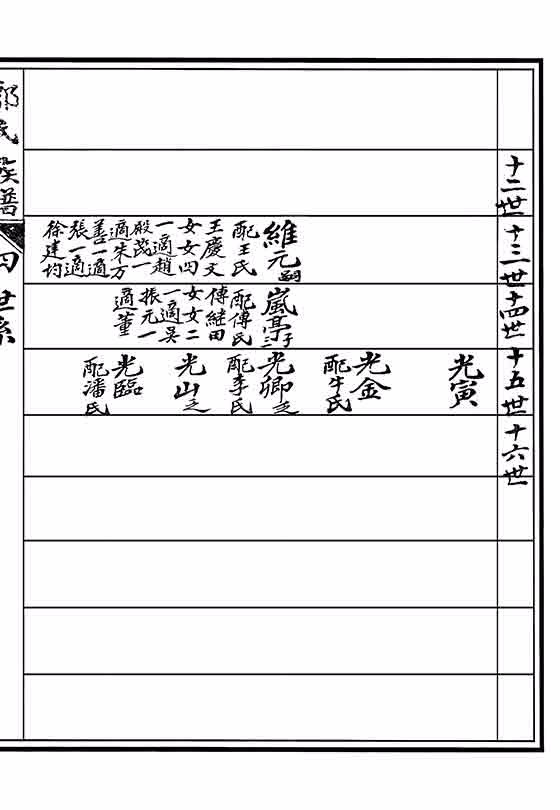 十二世
十三世
十四世
十五世
十六世
維元嗣
配王氏
王慶文
女女四
一適趙
殿蕊一
適朱万
善一適
張一適
徐建均
嵐亭子三
配傅氏
傅継田
女女二
一適吴
振元一
適董
光寅
光金
配牛氏
光卿乏
配李氏
光山乏
光臨
配潘氏
郭氏族譜
四
世系